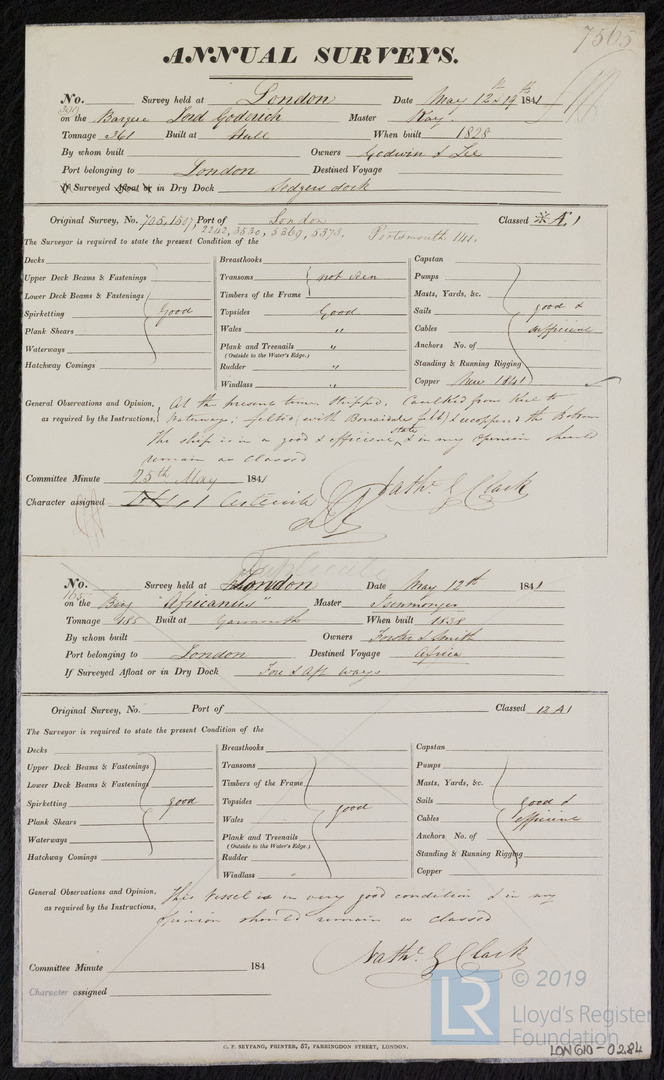 7565
ANNUAL SURVEYS.
No. Survey held at London Date May 12th & 19th 1841
on the Barque Lord Goderich Master Kay
Tonnage 361 Built at Hull When built 1828
By whom built Owners Godwin & Lee
Port belonging to London Destined Voyage
If Surveyed Afloat or in Dry Dock Sedgers dock
Original Survey, No. 705, 1507, Port of London Classed Æ 1
2242, 3530, 5369, 5573. Portsmouth 141.
The Surveyor is required to state the present Condition of the
Decks Breasthooks Capstan
Upper Deck Beams & Fastenings Transoms not seen Pumps
Lower Deck Beams & Fastenings Timbers of the Frame Masts, Yards, &c.
Spirketting Good Topsides Good Sails good &
Plank Shears Wales " Cables sufficient
Waterways Plank and Treenails " Anchors No. of
(Outside to the Water's Edge.)
Hatchway Comings Rudder " Standing & Running Rigging
Windlass " Copper New 1841
General Observations and Opinion, At the present time Stripped, Caulked from Keel to
as required by the Instructions, Waterways; felted (with Borradailes felt) & recoppered the Bottom
the ship is in a good & efficient state, & in my opinion should
remain as classed
Committee Minute 25th May 1841
Nathl. G Clark
Character assigned 1 Asterisk
Duplicate
No. Survey held at London Date May 12th 1841
on the Brig "Africanus" Master Isenmonger
Tonnage 185 Built at Yarmouth When built 1838
By whom built Owners Forster & Smith
Port belonging to London Destined Voyage Africa
If Surveyed Afloat or in Dry Dock Fore & Aft ways
Original Survey, No. Port of Classed 12 A1
The Surveyor is required to state the present Condition of the
Decks Breasthooks Capstan
Upper Deck Beams & Fastenings Transoms Pumps
Lower Deck Beams & Fastenings Timbers of the Frame Masts, Yards, &c.
Spirketting good Topsides Sails good &
Plank Shears Wales good Cables efficient
Waterways Plank and Treenails Anchors No. of
(Outside to the Water's Edge.)
Hatchway Comings Rudder Standing & Running Rigging
Windlass Copper
General Observations and Opinion, This Vessel is in very good condition & in my
as required by the Instructions, Opinion should remain as classed
Nathl. G Clark
Committee Minute 184
Character assigned
C. F. SEYFANG, PRINTER, 57, FARRINGDON STREET, LONDON.
LR © 2019
Lloyd's Register
Foundation
LON610-0284